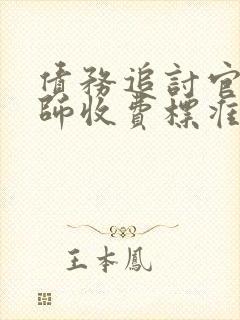 債務追討官
師收費標准
王本鳳